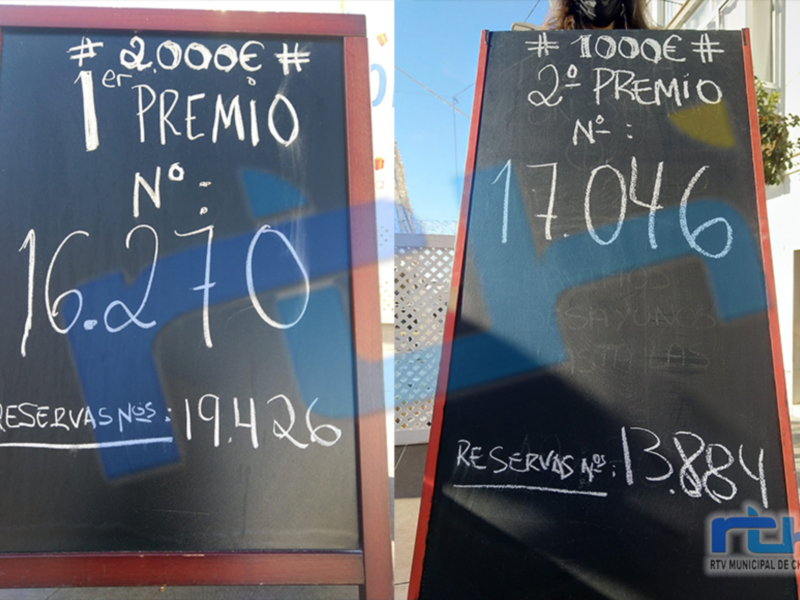 # 2.000€ #
1er PREMIO
Nº:
16.270
RESERVAS Nos: 19.426
# 1000€ #
2º PREMIO
Nº:
17.046
DESAYUNOS
RESERVAS Nos: 13.884
RTV MUNICIPAL DE